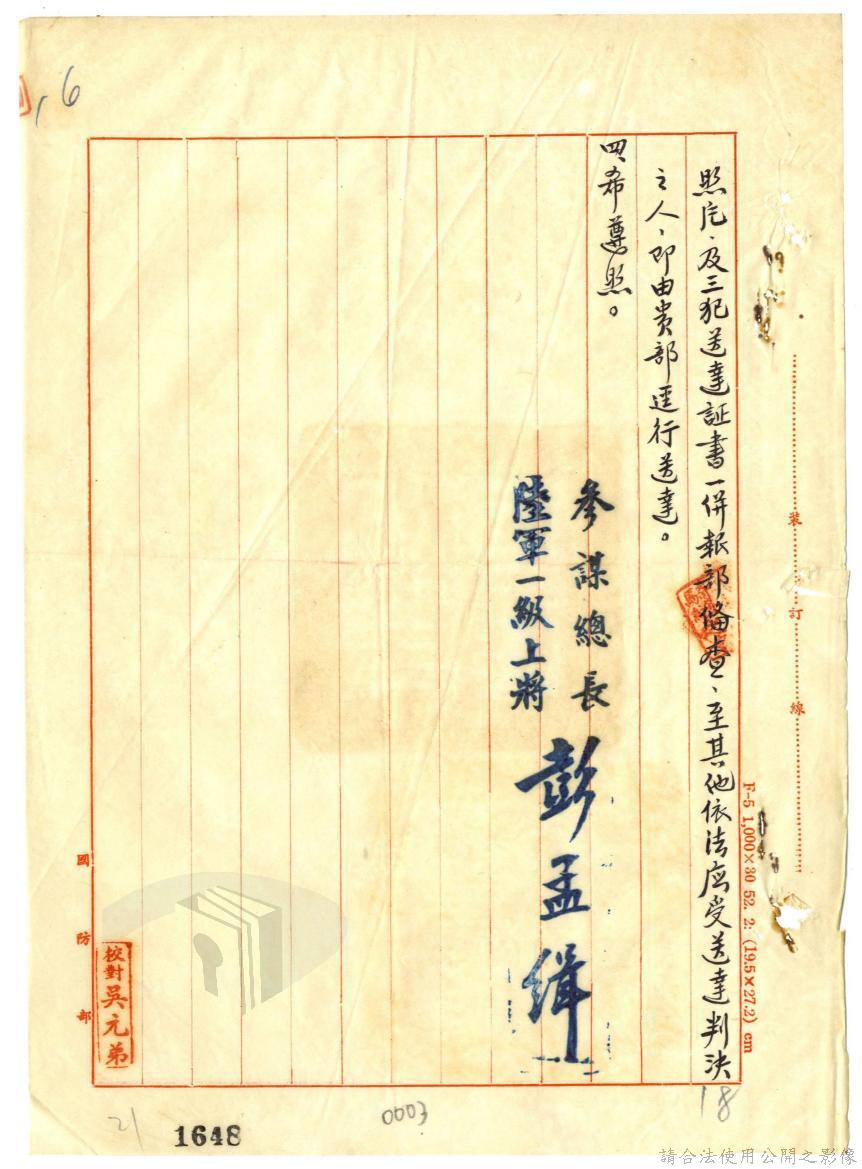 照片、及三犯送達証書一併報部備查、至其他依法應受送達判決
之人、即由貴部逕行送達。
四、希遵照。
參謀總長
陸軍一級上將
彭孟緝
裝訂線
F-5 1,000×30 52. 2: (19.5×27.2) cm
國防部
校對吳元弟
16
18
21
1648
0003
請合法使用公開之影像